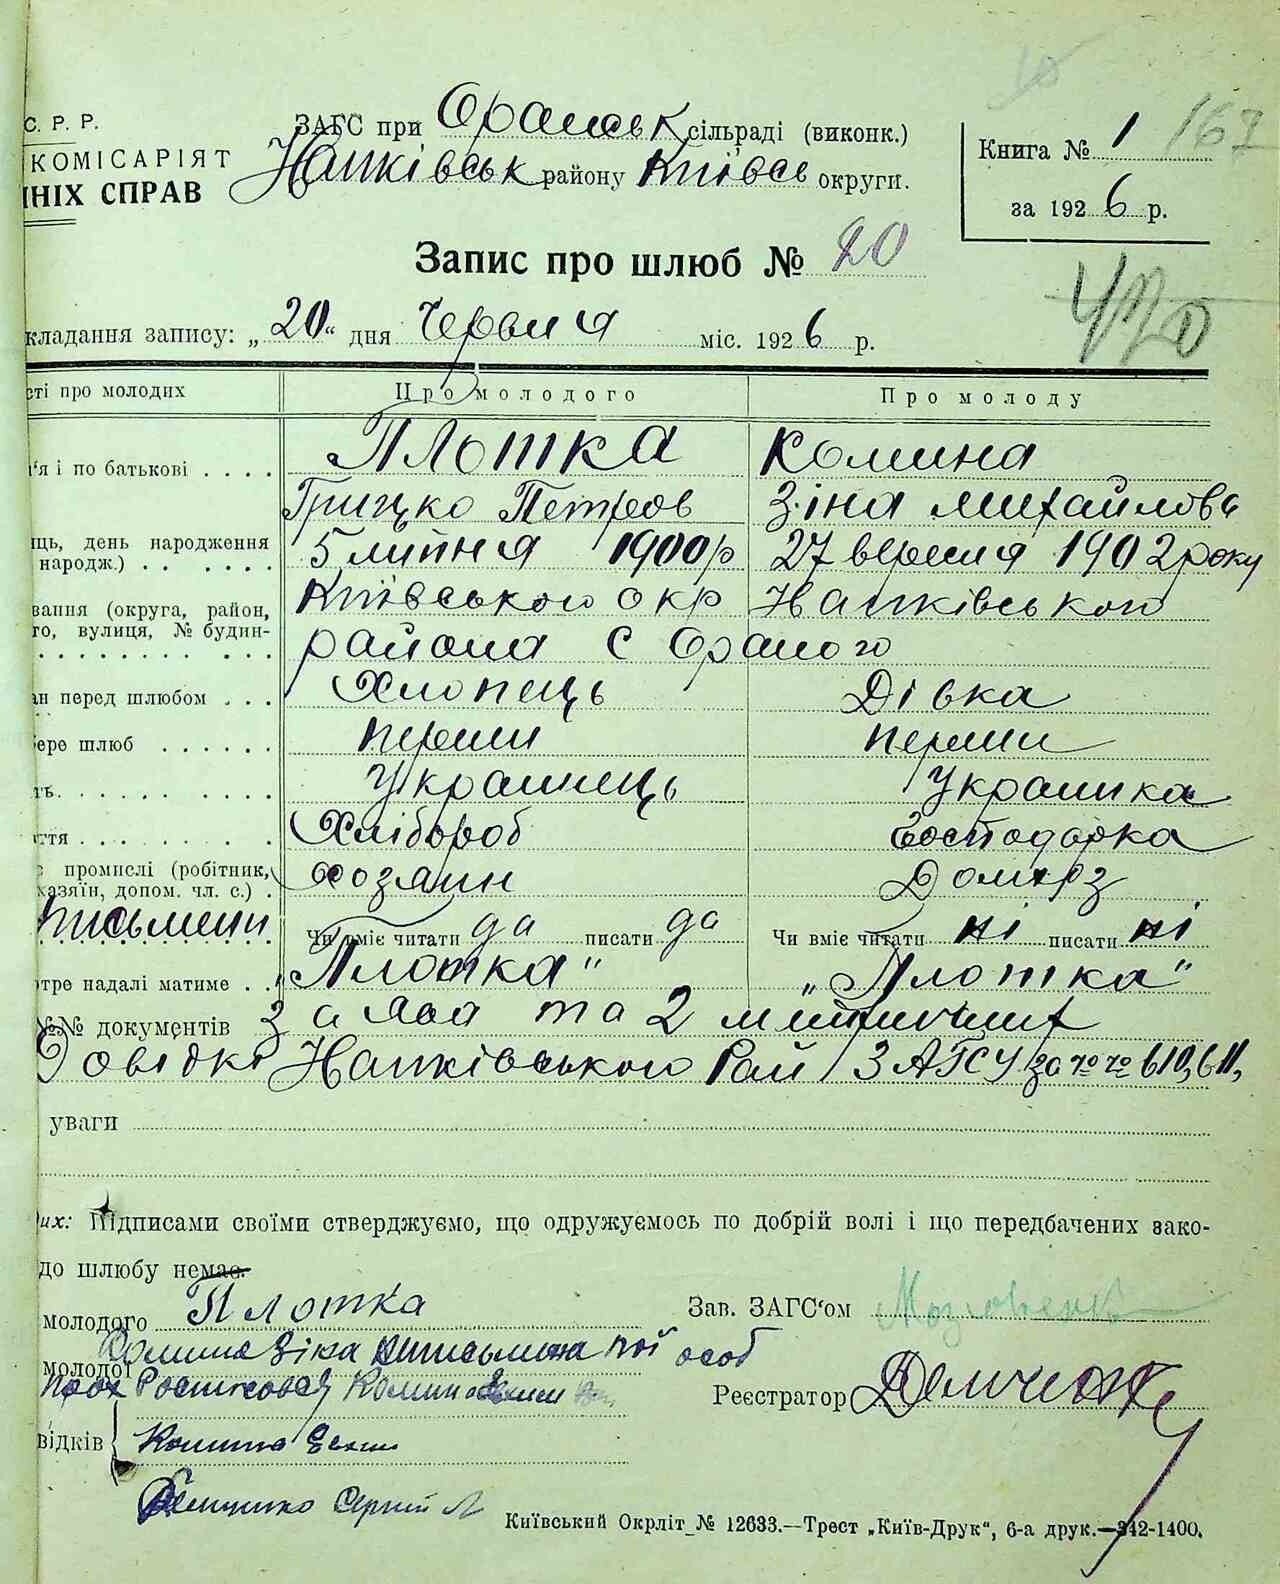 С. Р. Р.
КОМІСАРІЯТ
НІХ СПРАВ
ЗАГС при Оранськ сільраді (виконк.)
Хапківськ району Київсь округи.
Книга № 1 167
за 1926 р.
Запис про шлюб № 20
кладання запису: „20“ дня Червня міс. 1926 р.
470
сті про молодих
Про молодого
Про молоду
'я і по батькові . . . .
Плотка
Комина
Грицко Петров
Зіна Михайлова
ць, день народження
народж.) . . . . . . .
5 липня 1900 р
27 вересня 1902 року
вання (округа, район,
го, вулиця, № будин-
Київського окр Хапківського
района с Ораного
ан перед шлюбом . . .
Хлопець
Дівка
бере шлюб . . . . . .
Перши
Перши
ть. . . . . . . . . .
Українець
Украинка
ття . . . . . . . . .
Хлібороб
Господарка
промислі (робітник,
хазяїн, допом. чл. с.) .
Хозяин
письмени
Чи вміє читати да писати да
Чи вміє читати ні писати ні
тре надалі матиме . .
„Плотка“
„Плотка“
№№ документів
Заява та 2
Довідкі Хапківського Рай ЗАГСУ за 610, 611,
уваги
их: Підписами своїми стверджуємо, що одружуємось по добрій волі і що передбачених зако-
до шлюбу немає.
молодого Плотка
Зав. ЗАГС'ом
молодої Комина Зіна особ
Реєстратор Демченко
відків
Сергій
Київський Окрліт № 12633.—Трест „Київ-Друк“, 6-а друк.—342-1400.